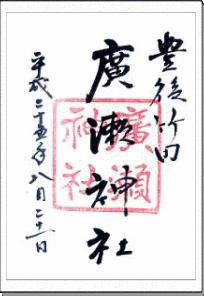 豊後竹田
廣瀬神社
平成二十五年八月二十一日
廣瀬
神社